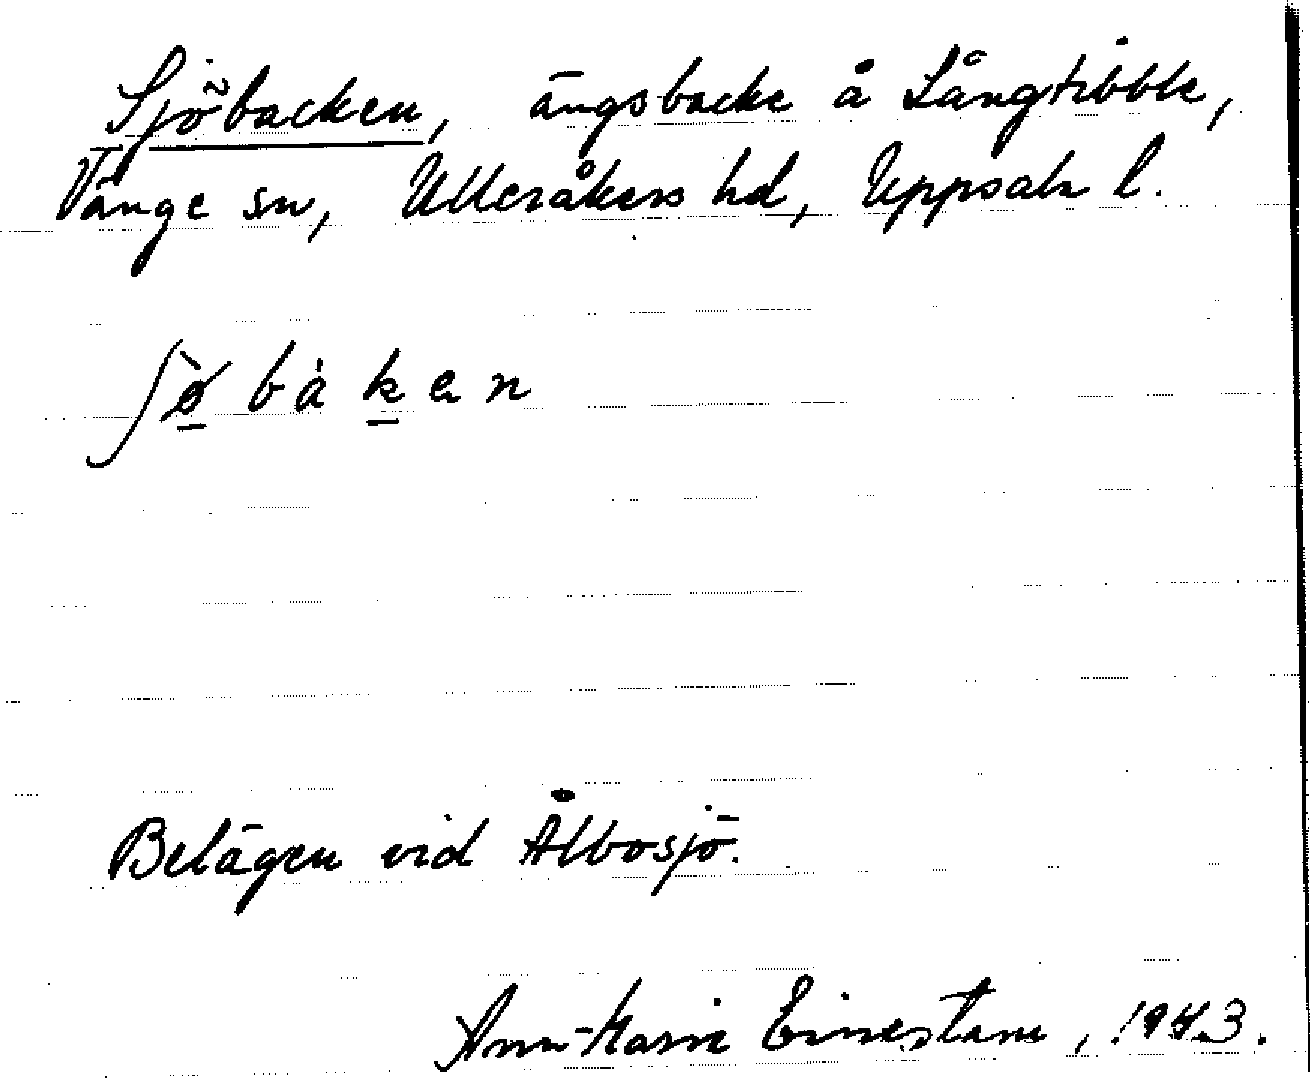 Sjöbacken, ängsbacke å Långtibble,
Vänge sn, Ulleråkers hd, Uppsala l.
ʃø̀bàkən
Belägen vid Ålbosjö.
Ann-Marie Einestam, 1943.